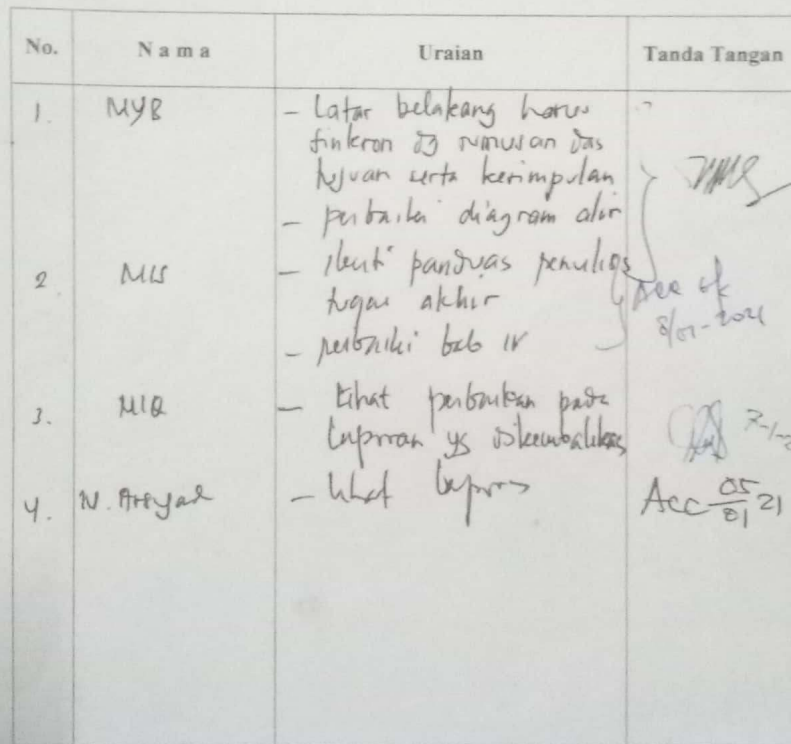 No. Nama Uraian Tanda Tangan
1. MYB - Latar belakang harus
sinkron dg rumusan das
tujuan serta kesimpulan
- perbaiki diagram alir
2 MIS - ikuti panduas penulis
tugas akhir Acc ok
8/01-2021
- perbaiki bab IV
3. MIQ - Lihat perbaikan pada
laporan yg dikembalikas 7-1-2
4. N. Arsyad - lihat lapors Acc 05/01 21